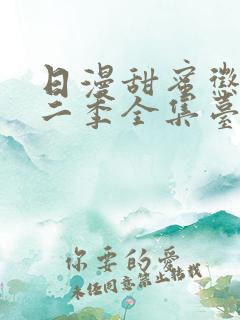 日漫甜蜜懲
二季全集臺
你要的愛
未经同意禁止转载